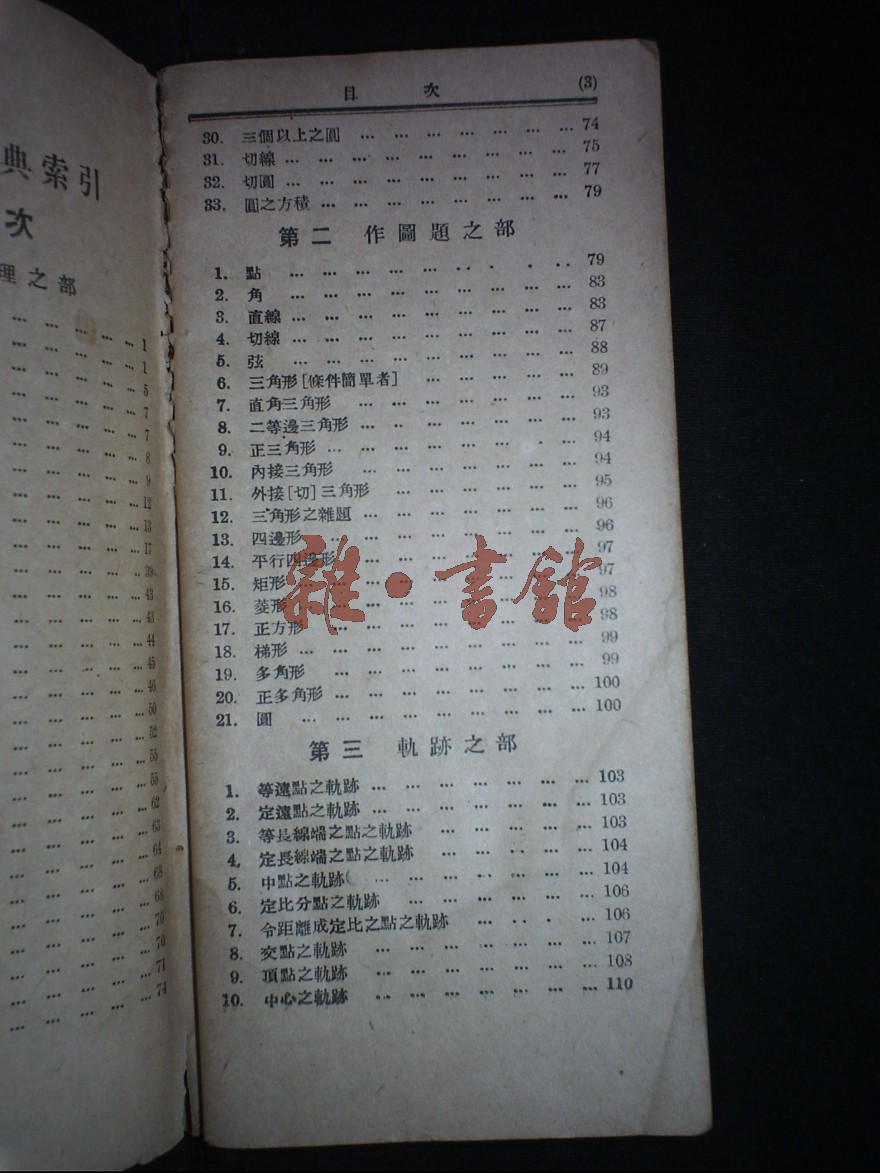 典索引
次
理之部
… … … … 1
… … … … 1
… … … … 5
… … … … 7
… … … … 7
… … … … 8
… … … … 9
… … … … 12
… … … … 13
… … … … 17
… … … … 39
… … … … 43
… … … … 43
… … … … 44
… … … … 45
… … … … 46
… … … … 50
… … … … 52
… … … … 55
… … … … 55
… … … … 62
… … … … 63
… … … … 64
… … … … 68
… … … … 68
… … … … 70
… … … … 70
… … … … 71
… … … … 74
目 次 (3)
30. 三個以上之圓 … … … … … … … 74
31. 切線 … … … … … … … … … 75
32. 切圓 … … … … … … … … … 77
33. 圓之方積 … … … … … … … … 79
第二 作圖題之部
1. 點 … … … … … … … … 79
2. 角 … … … … … … … … … 83
3. 直線 … … … … … … … … … 83
4. 切線 … … … … … … … … … 87
5. 弦 … … … … … … … … … 88
6. 三角形[條件簡單者] … … … … … 89
7. 直角三角形 … … … … … … … 93
8. 二等邊三角形 … … … … … … … 93
9. 正三角形 … … … … … … … … 94
10. 內接三角形 … … … … … … … 94
11. 外接[切]三角形 … … … … … … 95
12. 三角形之雜題 … … … … … … … 96
13. 四邊形 … … … … … … … … 96
14. 平行四邊形 … … … … … … … 97
15. 矩形 … … … … … … … … … 97
16. 菱形 … … … … … … … … … 98
17. 正方形 … … … … … … … … 98
18. 梯形 … … … … … … … … … 99
19. 多角形 … … … … … … … … 99
20. 正多角形 … … … … … … … … 100
21. 圓 … … … … … … … … … 100
第三 軌跡之部
1. 等遠點之軌跡 … … … … … … … 103
2. 定遠點之軌跡 … … … … … … … 103
3. 等長線端之點之軌跡 … … … … … 103
4. 定長線端之點之軌跡 … … … … … 104
5. 中點之軌跡 … … … … … … … 104
6. 定比分點之軌跡 … … … … … … 106
7. 令距離成定比之點之軌跡 … … … … 106
8. 交點之軌跡 … … … … … … … 107
9. 頂點之軌跡 … … … … … … … 108
10. 中心之軌跡 … … … … … … … 110
雜·書館